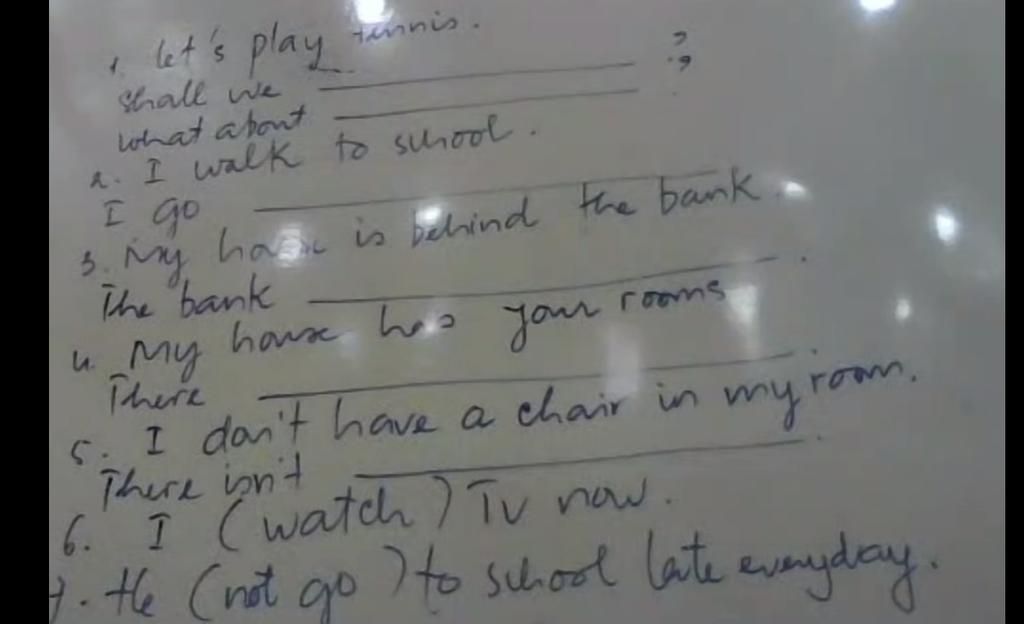 1. let's play tennis.
shall we ____________ ?
what about ____________ ?
2. I walk to school.
I go ____________
3. My house is behind the bank.
The bank ____________ .
4. My house has your rooms
There ____________
5. I don't have a chair in my room.
There isn't ____________ .
6. I (watch) TV now.
7. He (not go) to school late everyday.